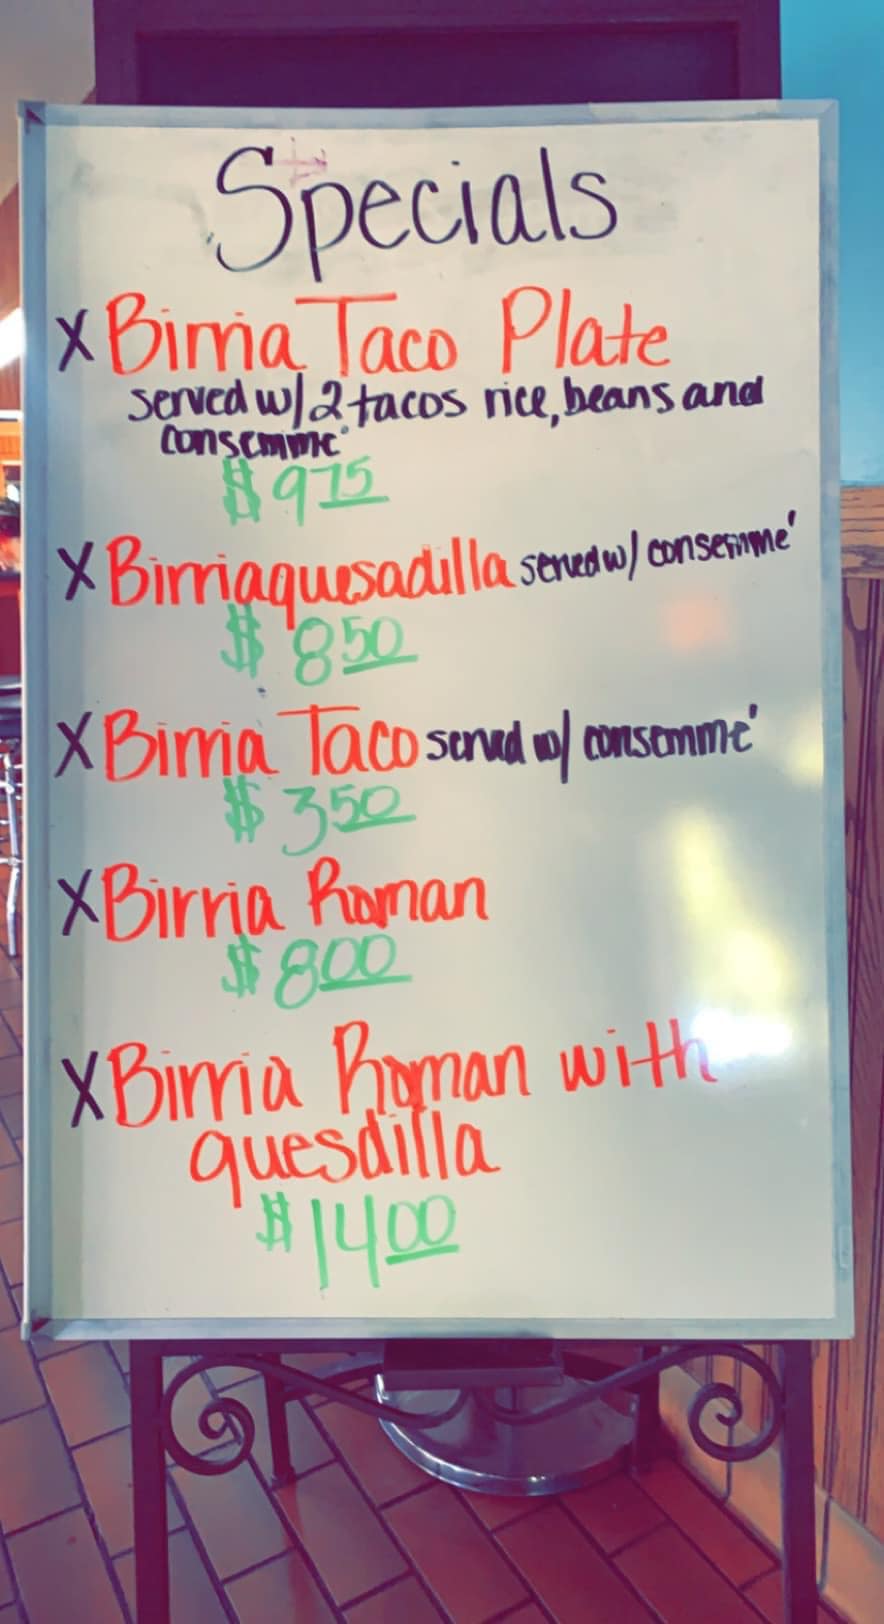 Specials
X Birria Taco Plate
served w/ 2 tacos rice, beans and
consemme'
$ 975
X Birriaquesadilla served w/ consemme'
$ 850
X Birria Taco served w/ consemme'
$ 350
X Birria Roman
$ 800
X Birria Roman with
quesdilla
$ 1400